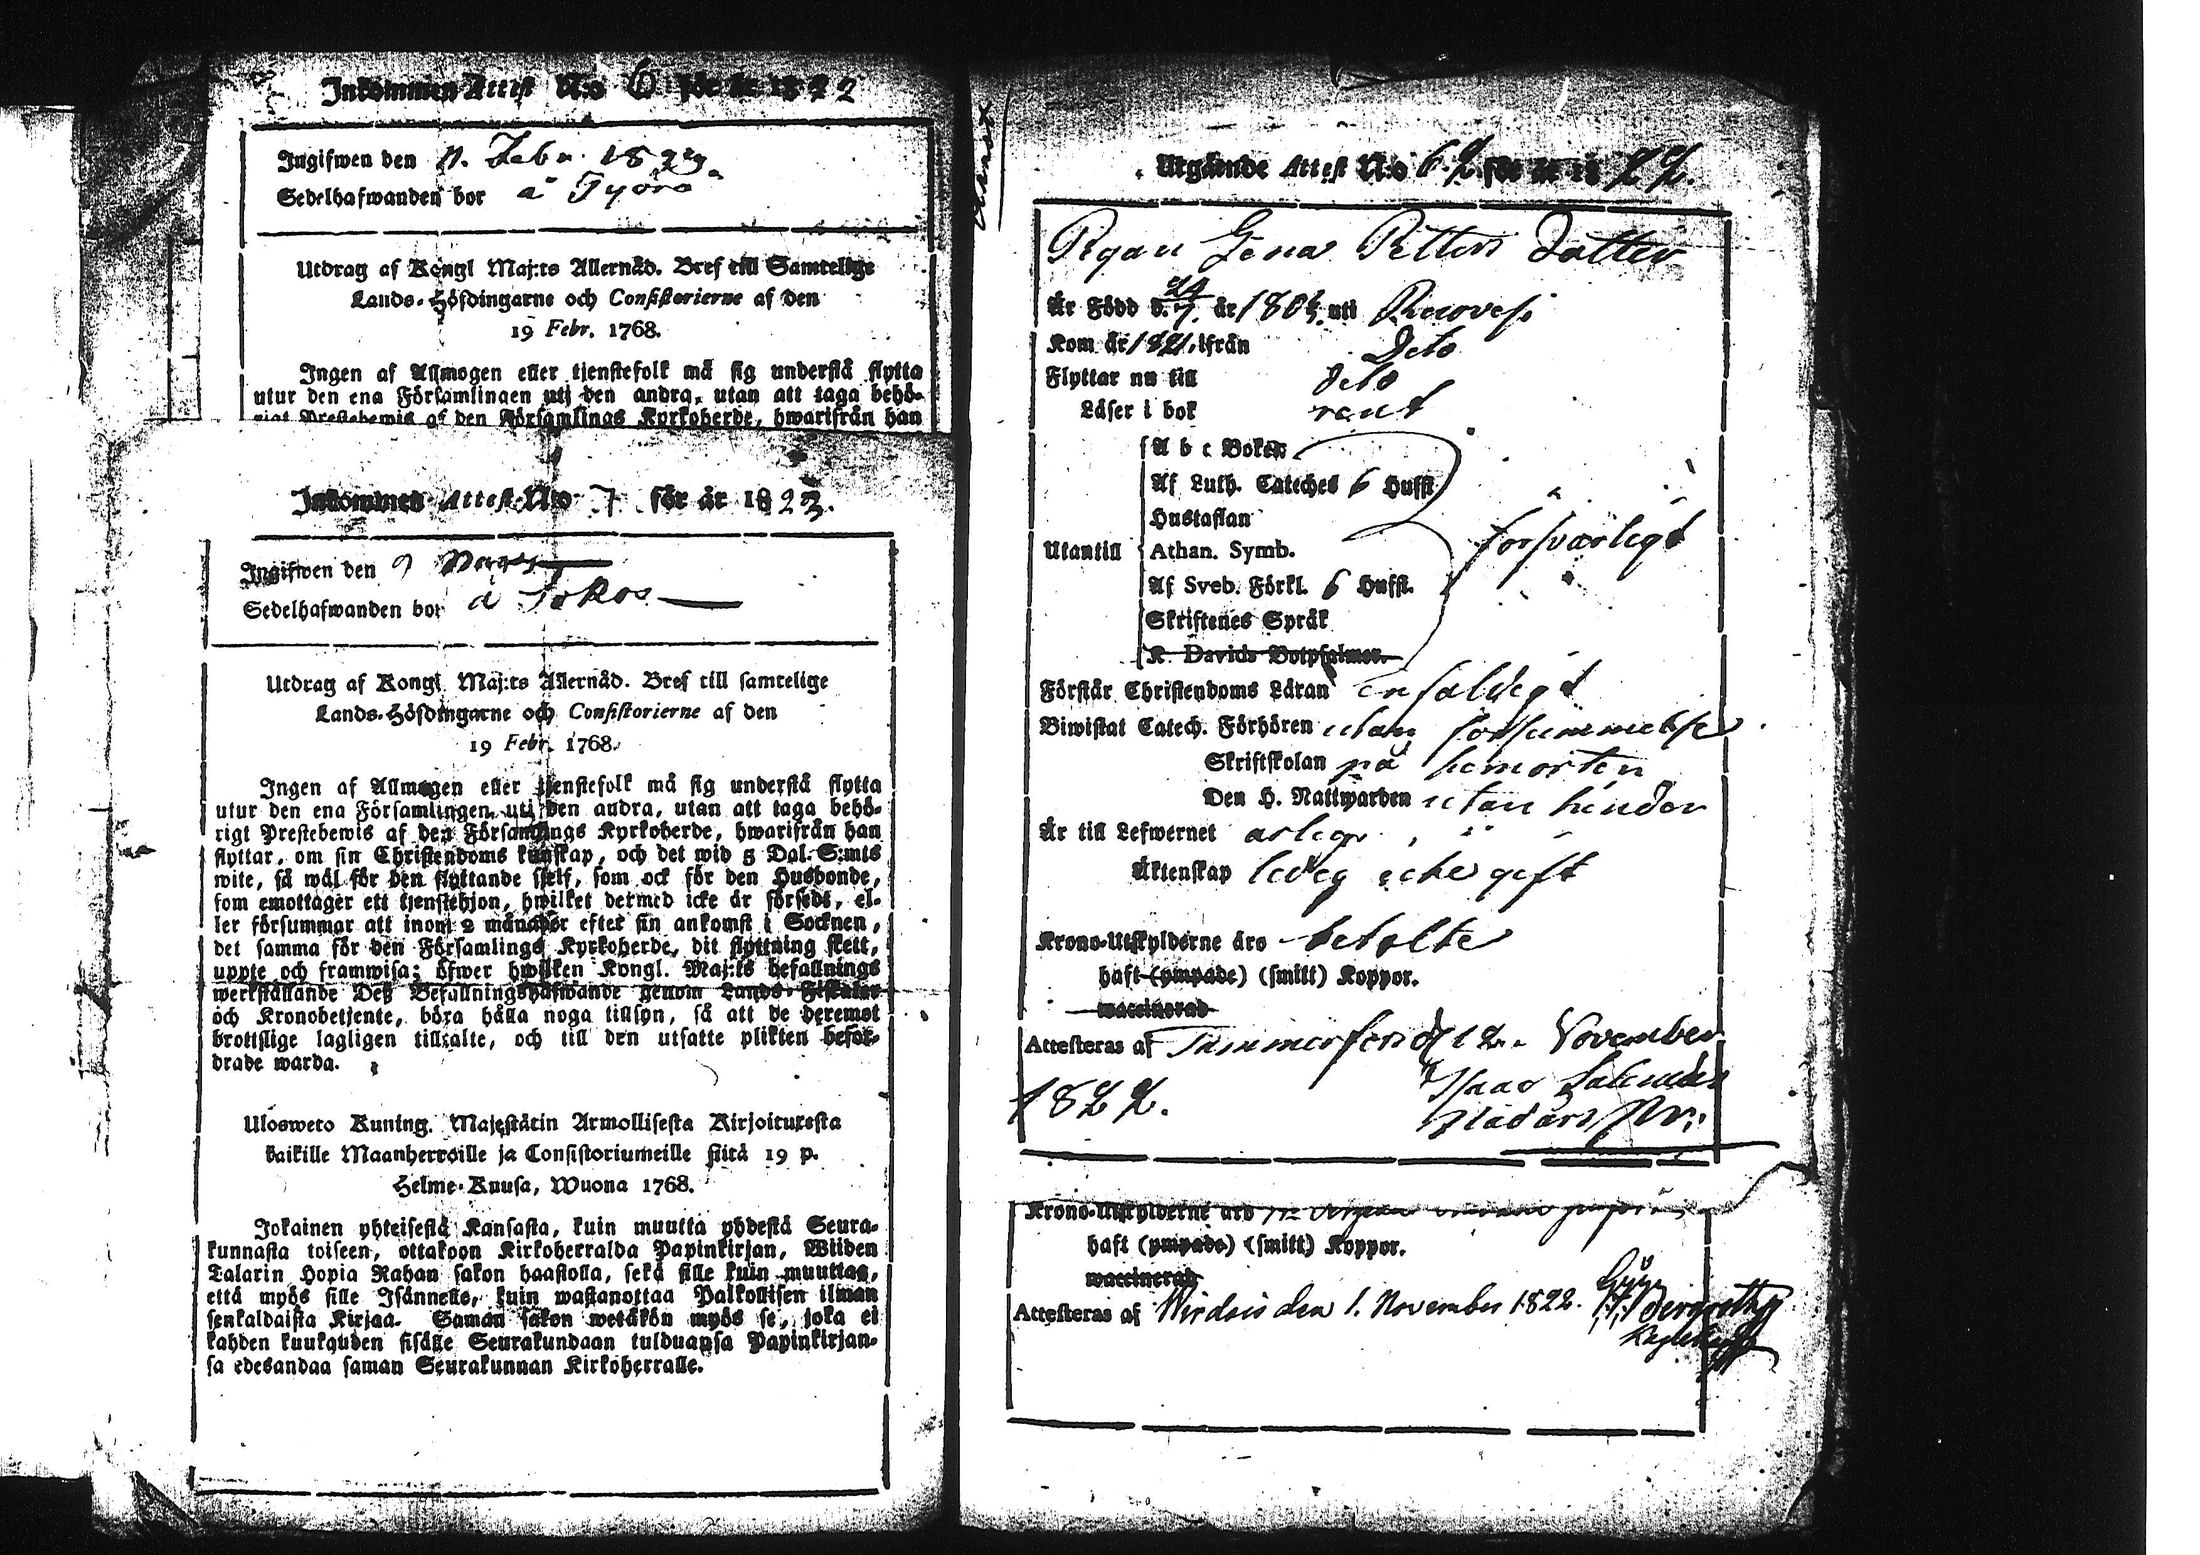 Inkommen Attest N:o 6 för år 1822
Ingifwen den 11. Febr. 1823.
Sedelhafwanden bor å
Utdrag af Kongl Maj:ts Allernåd. Bref till Samtelige
Lands-Höfdingarne och Consistorierne af den
19 Febr. 1768.
Ingen af Allmogen eller tjenstefolk må sig understå flytta
utur den ena Församlingen uti den andra, utan att taga behö-
rigt Prestebewis af den Församlings Kyrkoherde, hwarifrån han
Inkommen Attest N:o 7 för år 1823.
Ingifwen den 9 Mars
Sedelhafwanden bor å
Utdrag af Kongl. Maj:ts Allernåd. Bref till samtelige
Lands-Höfdingarne och Consistorierne af den
19 Febr. 1768.
Ingen af Allmogen eller tjenstefolk må sig understå flytta
utur den ena Församlingen uti den andra, utan att taga behö-
rigt Prestebewis af den Församlings Kyrkoherde, hwarifrån han
flyttar, om sin Christendoms kunskap, och det wid 5 Dal. S:mts
wite, så wäl för den flyttande sjelf, som ock för den Husbonde,
som emottager ett tjenstehjon, hwilket dermed icke är försedt, el-
ler försummar att inom 2 månader efter sin ankomst i Socknen,
det samma för den Församlings Kyrkoherde, dit flyttning skett,
uppte och framwisa; öfwer hwilken Kongl. Maj:ts befallnings
werkställande Deß Befallningshafwande genom Lands-Fiskaler
och Kronobetjente, böra hålla noga tillsyn, så att de deremot
brottslige lagligen tilltalte, och till den utsatte plikten befor-
drade warda.
Ulosweto Kuning. Majestätin Armollisesta Kirjoituxesta
kaikille Maanherroille ja Consistoriumeille siitä 19 p.
Helme-Kuusa, Wuona 1768.
Jokainen yhteisestä Kansasta, kuin muutta yhdestä Seura-
kunnasta toiseen, ottakoon Kirkoherralda Papinkirjan, Wiiden
Talarin Hopia Rahan sakon haastolla, sekä sille kuin muuttaa,
että myös sille Isännelle, kuin wastanottaa Palkollisen ilman
senkaldaista Kirjaa. Saman sakon wetäkön myös se, joka ei
kahden kuukauden sisälle Seurakundaan tulduansa Papinkirjan-
sa edesandaa saman Seurakunnan Kirkoherralle.
Utgående Attest N:o 62 för år 1822.
Pigan Lena Petters dotter
Är Född d. 24/7 år 180 uti Ruovesi
Kom år 1821 ifrån Dito
Flyttar nu till dito
Läser i bok rent
A b c Boken
Af Luth. Cateches 6 Hufst.
Hustaflan
Utantill Athan. Symb. försvarligt
Af Sveb. Förkl. 6 Hufst.
Skriftenes Språk
K. Davids Botpsalmer.
Förstår Christendoms Läran enfaldigt
Biwistat Catech. Förhören utan försummelse
Skriftskolan på hemorten
Den H. Nattwarden utan hinder
Är till Lefwernet ärlig
Äktenskap ledig icke gift
Krono-Utskylderne äro betalte
haft (ympade) (smitt) Koppor.
waccinerad
Attesteras af Tammerfors d 12. November
1822. Isaac
Krono-Utskylderne äro
haft (ympade) (smitt) Koppor.
waccinerad
Attesteras af Wirdois den 1. November 1822.